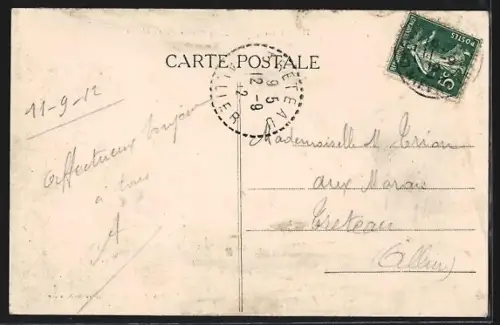 CARTE POSTALE
TRETEAU
9 5
12-9
12
ALLIER
POSTES
5c
11-9-12
Affectueux bonjour
à tous
A
Mademoiselle M
aux Marais
Treteau
(Allier)